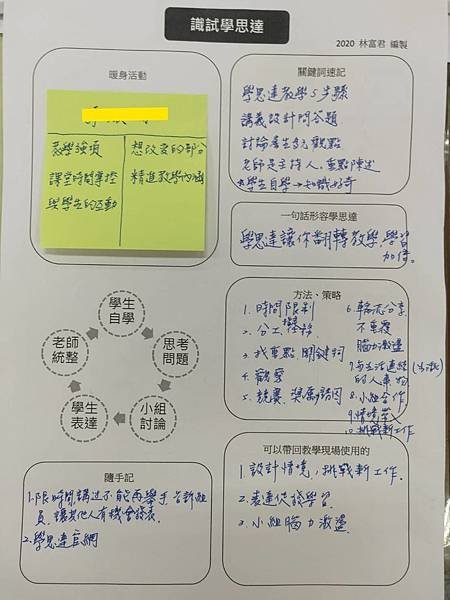 識試學思達
2020 林富君 編製
暖身活動
教學強項
想改變的部分
課堂時間掌控
精進教學內涵
與學生的互動
關鍵詞速記
學思達教學5步驟
講義設計問答題
討論產生多元觀點
老師是主持人、重點陳述
學生自學→知識好奇
一句話形容學思達
學思達讓你翻轉教學,學習
加倍。
學生
自學
思考
問題
小組
討論
學生
表達
老師
統整
方法、策略
1. 時間限制
2. 分工
3. 找重點、關鍵詞
4. 觀察
5. 競賽、獎勵
6. 輪流分享
不重複
腦力激盪
7. 與生活連結
的人事物
8. 小組合作
9. 情境
10. 挑戰新工作
隨手記
1. 限時間,講過不能再舉手
員,讓其他人有機會發表。
2. 學思達官網
可以帶回教學現場使用的
1. 設計情境,挑戰新工作.
2. 表達促發學習
3. 小組腦力激盪